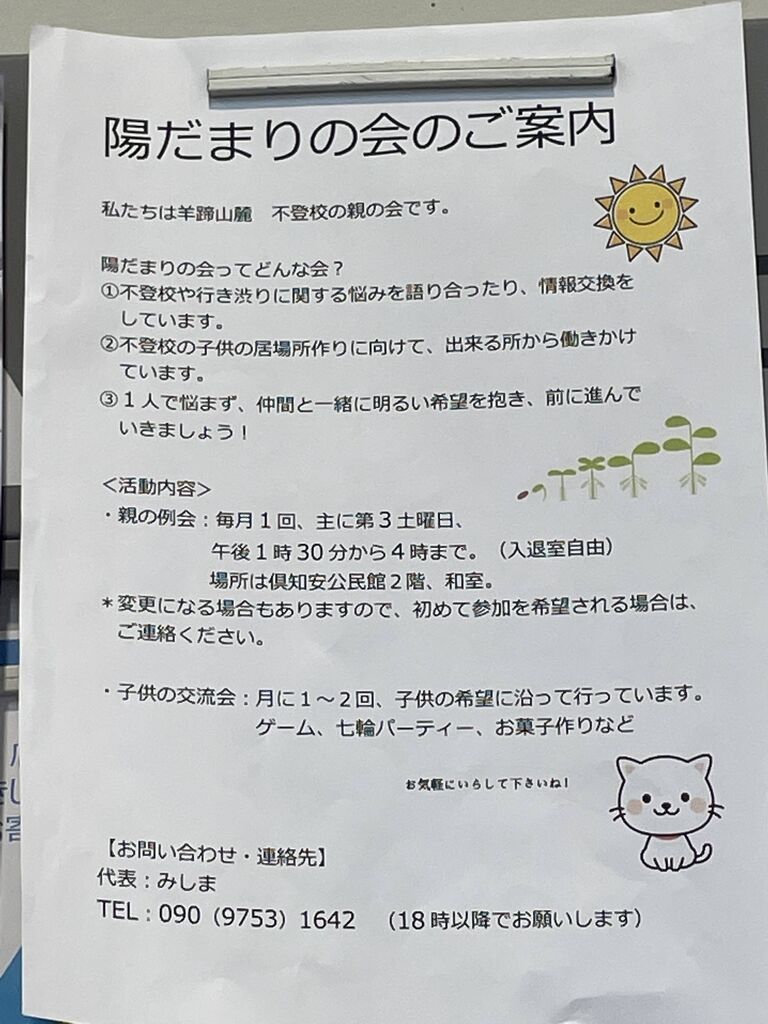 陽だまりの会のご案内
私たちは羊蹄山麓　不登校の親の会です。
陽だまりの会ってどんな会？
①不登校や行き渋りに関する悩みを語り合ったり、情報交換を
しています。
②不登校の子供の居場所作りに向けて、出来る所から働きかけ
ています。
③１人で悩まず、仲間と一緒に明るい希望を抱き、前に進んで
いきましょう！
＜活動内容＞
・親の例会：毎月１回、主に第３土曜日、
午後１時30分から４時まで。（入退室自由）
場所は倶知安公民館２階、和室。
＊変更になる場合もありますので、初めて参加を希望される場合は、
ご連絡ください。
・子供の交流会：月に１～２回、子供の希望に沿って行っています。
ゲーム、七輪パーティー、お菓子作りなど
お気軽にいらして下さいね！
【お問い合わせ・連絡先】
代表：みしま
TEL：090（9753）1642　（18時以降でお願いします）